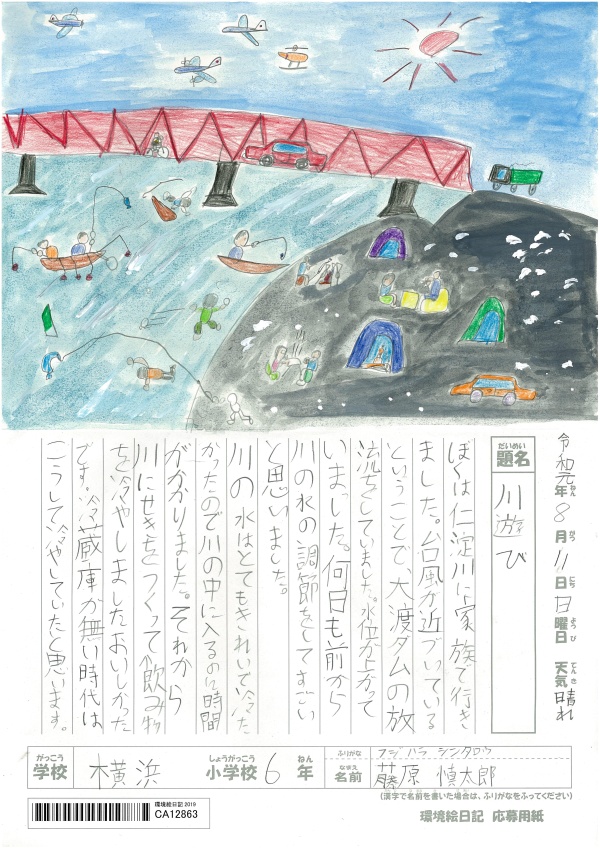 令和元年8月11日日曜日 天気晴れ
ねん
がつ
にち
ようび
てんき
だいめい
題名
川遊び
ぼくは仁淀川に家族で行き
ました。台風が近づいている
ということで、大渡ダムの放
流をしていました。水位が上がって
いました。何日も前から
川の水の調節をしてすごい
と思いました。
川の水はとてもきれいで冷た
かったので川の中に入るのに時間
がかかりました。それから
川にせきをつくって飲み物
を冷やしましたおいしかった
です。冷蔵庫が無い時代は
こうして冷やしていたと思います。
がっこう
学校 横浜 小学校 6年
しょうがっこう
ねん
ふりがな フジハラ シンタロウ
なまえ
名前 藤原 慎太郎
(漢字で名前を書いた場合は、ふりがなをふってください)
環境絵日記 2019
CA12863
環境絵日記 応募用紙